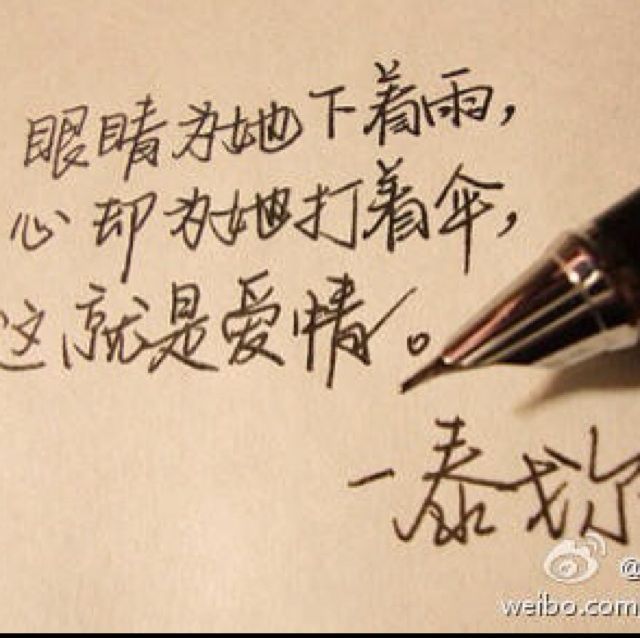 眼睛为她下着雨，
心却为她打着伞，
这就是爱情。
一泰戈尔
@
weibo.com